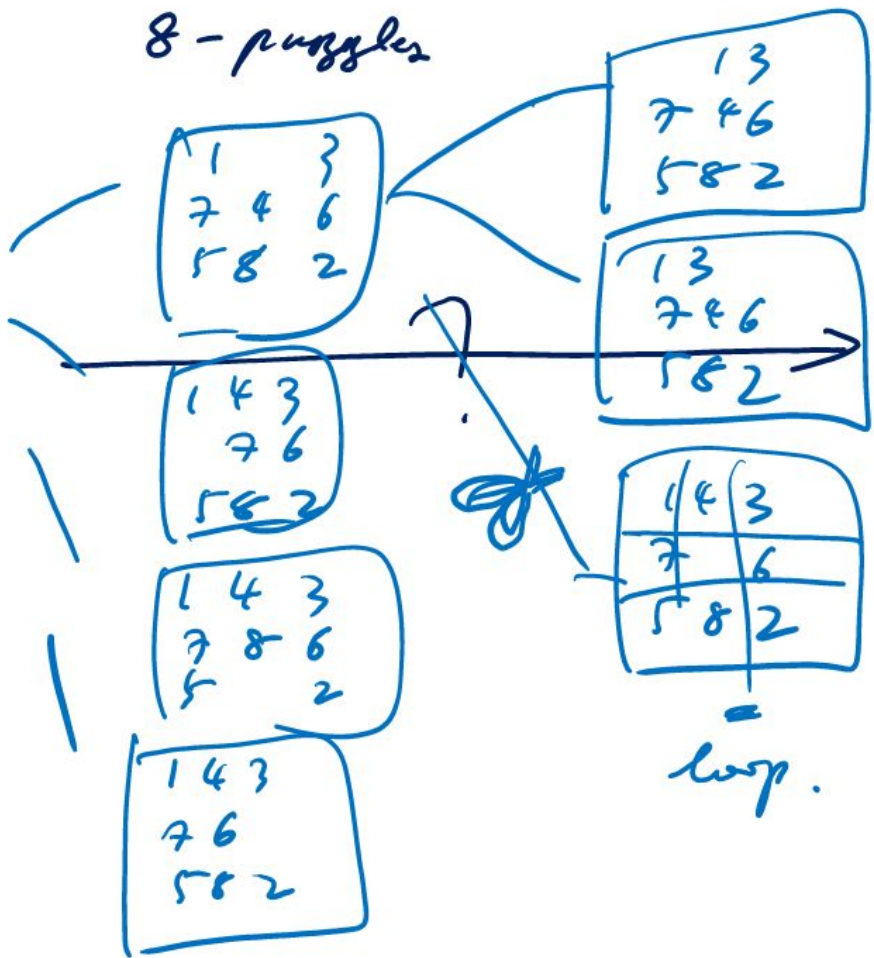 8 - puzzles
1 3
7 4 6
5 8 2
1 4 3
7 6
5 8 2
1 4 3
7 8 6
5 2
1 4 3
7 6
5 8 2
1 3
7 4 6
5 8 2
1 3
7 4 6
5 8 2
1 4 3
7 6
5 8 2
=
loop.
?